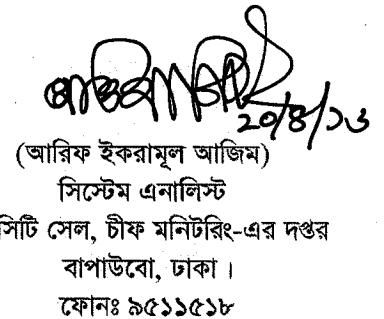 ২০/৪/১৬
(আরিফ ইকরামূল আজিম)
সিস্টেম এনালিস্ট
সিটি সেল, চীফ মনিটরিং-এর দপ্তর
বাপাউবো, ঢাকা ।
ফোনঃ ৯৫১১৫১৮